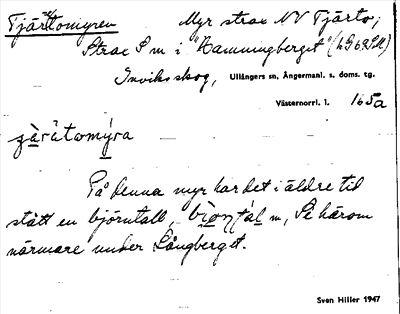 Tjärtomyren Myr strax NV Tjärto,
Strax S m i "Hamningberget" (h S 62 SM)
Inviksskog, Ullångers sn, Ångermanl. s. doms. tg.
Västernorrl. l. 165a
på denna myr har det i äldre tid
stått en björntall, se härom
närmare under Långberget.
Sven Hiller 1947